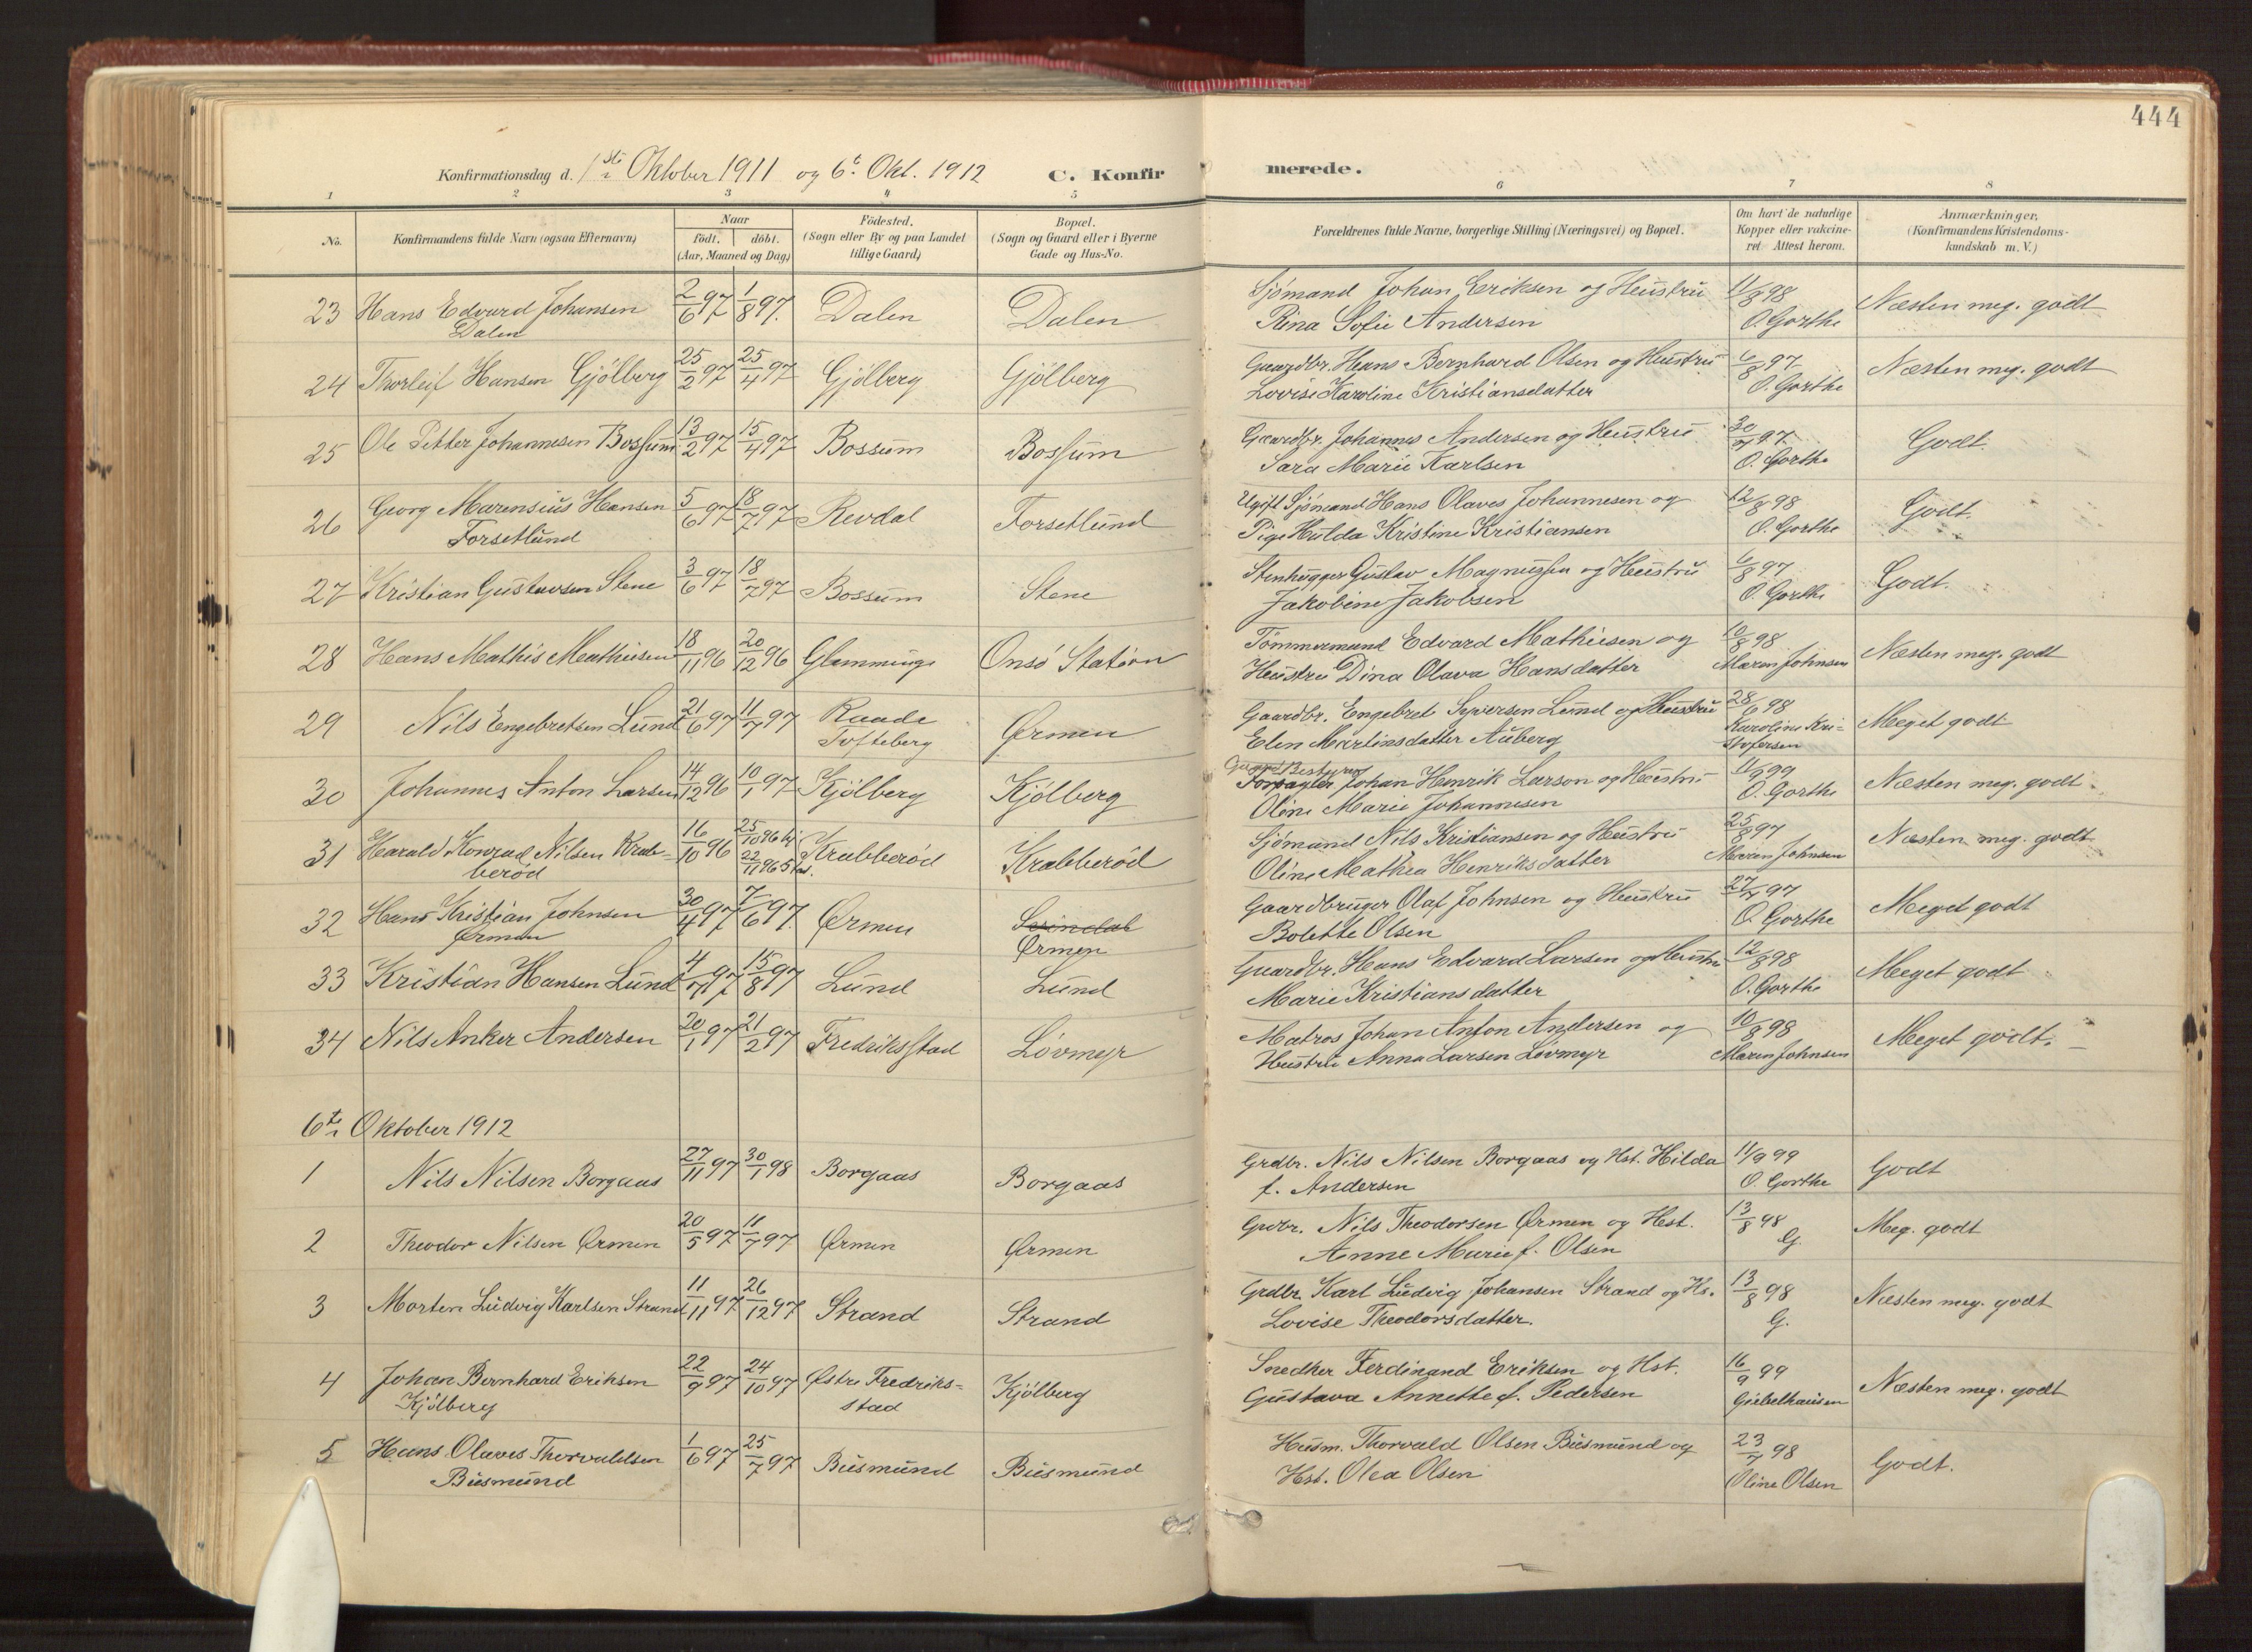 444
Konfirmationsdag d. 1ste Oktober 1911 og 6te Okt. 1912 C. Konfirmerede.
1 2 3 4 5 6 7 8
No. Konfirmandens fulde Navn (ogsaa Efternavn) Naar født. døbt. (Aar, Maaned og Dag) Fødested. (Sogn eller By og paa Landet tillige Gaard) Bopæl. (Sogn og Gaard eller i Byerne Gade og Hus-No. Forældrenes fulde Navne, borgerlige Stilling (Næringsvei) og Bopæl. Om havt de naturlige Kopper eller vakcineret. Attest herom. Anmærkninger. (Konfirmandens Kristendomskundskab m. V.)
23 Hans Edvard Johansen 2/6 97 1/8 97. Dalen Dalen Sjømand Johan Eriksen og Hustru 11/8 98 Næsten meg. godt
Dalen Rina Sofie Andersen O. Gorthe
24 Thorleif Hansen Gjølberg 25/2 97 25/4 97 Gjølberg Gjølberg Gaardbr. Hans Bernhard Olsen og Hustru 6/8 97 Næsten meg. godt
Lovise Karoline Kristiansdatter O. Gorthe
25 Ole Petter Johannesen Bossum 13/2 97 15/4 97 Bossum Bossum Gaardbr. Johannes Andersen og Hustru 30/7 97 Godt.
Sara Marie Karlsen O. Gorthe
26 Georg Marensius Hansen 5/6 97 18/7 97 Revdal Forsetlund Ugift Sjømand Hans Olaves Johannesen og 12/8 98 Godt.
Forsetlund Pige Hulda Kristine Kristiansen O. Gorthe
27 Kristian Gustavsen Stene 3/6 97 18/7 97 Bossum Stene Stenhugger Gustav Magnussen og Hustru 6/8 97 Godt.
Jakobine Jakobsen O. Gorthe
28 Hans Mathis Mathisen 18/11 96 20/12 96 Glemminge Onsø Station Tømmermand Edvard Mathiesen og 10/8 98 Næsten meg. godt
Hustru Dina Olava Hansdatter Maren Johnsen
29 Nils Engebretsen Lund 21/6 97 11/7 97 Raade Tofteberg Ørmen Gaardbr. Engebret Syversen Lund og Hustru 28/6 98 Meget godt
Elen Martinsdatter Auberg Karoline Kristofersen
30 Johannes Anton Larsen 14/12 96 10/1 97 Kjølberg Kjølberg Forpagter Johan Henrik Larson og Hustru 11/9 99 Næsten meg. godt.
Oline Marie Johannesen O. Gorthe
31 Harald Konrad Nilsen Krabberød 16/10 96 25/10 96 hj 22/11 96 Stad. Krabberød Krabberød Sjømand Nils Kristiansen og Hustru 25/8 97 Næsten meg. godt
Oline Mathea Henriksdatter Maren Johnsen
32 Hans Kristian Johnsen 30/4 97 7/6 97. Ørmen Ørmen Gaardbruger Olaf Johnsen og Hustru 27/7 97 Meget godt
Ørmen Bolette Olsen O. Gorthe
33 Kristian Hansen Lund 4/7 97 15/8 97 Lund Lund Gaardbr. Hans Edvard Larsen og Hustru 12/8 98 Meget godt
Marie Kristiansdatter O. Gorthe
34 Nils Anker Andersen 20/1 97 21/2 97 Fredriksstad Løvmyr Matros Johan Anton Andersen og 10/8 98 Meget godt.
Hustru Anna Larsen Løvmyr Maren Johnsen
6te Oktober 1912
1 Nils Nilsen Borgaas 27/11 97 30/1 98 Borgaas Borgaas Grdbr. Nils Nilsen Borgaas og Hst. Hilda 11/9 99 Godt
f. Andersen O. Gorthe
2 Theodor Nilsen Ørmen 20/5 97 11/7 97 Ørmen Ørmen Grdbr. Nils Theodorsen Ørmen og Hst. 13/8 98 Meg. godt
Anne Marie f. Olsen G.
3 Morten Ludvig Karlsen Strand 11/11 97 26/12 97 Strand Strand Grdbr. Karl Ludvig Johansen Strand og Hs. 13/8 98 Næsten meg. godt
Lovise Theodorsdatter. G.
4 Johan Bernhard Eriksen 22/9 97 24/10 97 Østre Fredriksstad Kjølberg Snedker Ferdinand Eriksen og Hst. 16/9 99 Næsten meg. godt
Kjølberg Gustava Annette f. Pedersen Giebelhausen
5 Hans Olaves Thorvaldsen 1/6 97 25/7 97 Busmund Busmund Husm. Thorvald Olsen Busmund og 23/7 98 Godt.
Busmund Hst. Olea Olsen Oline Olsen